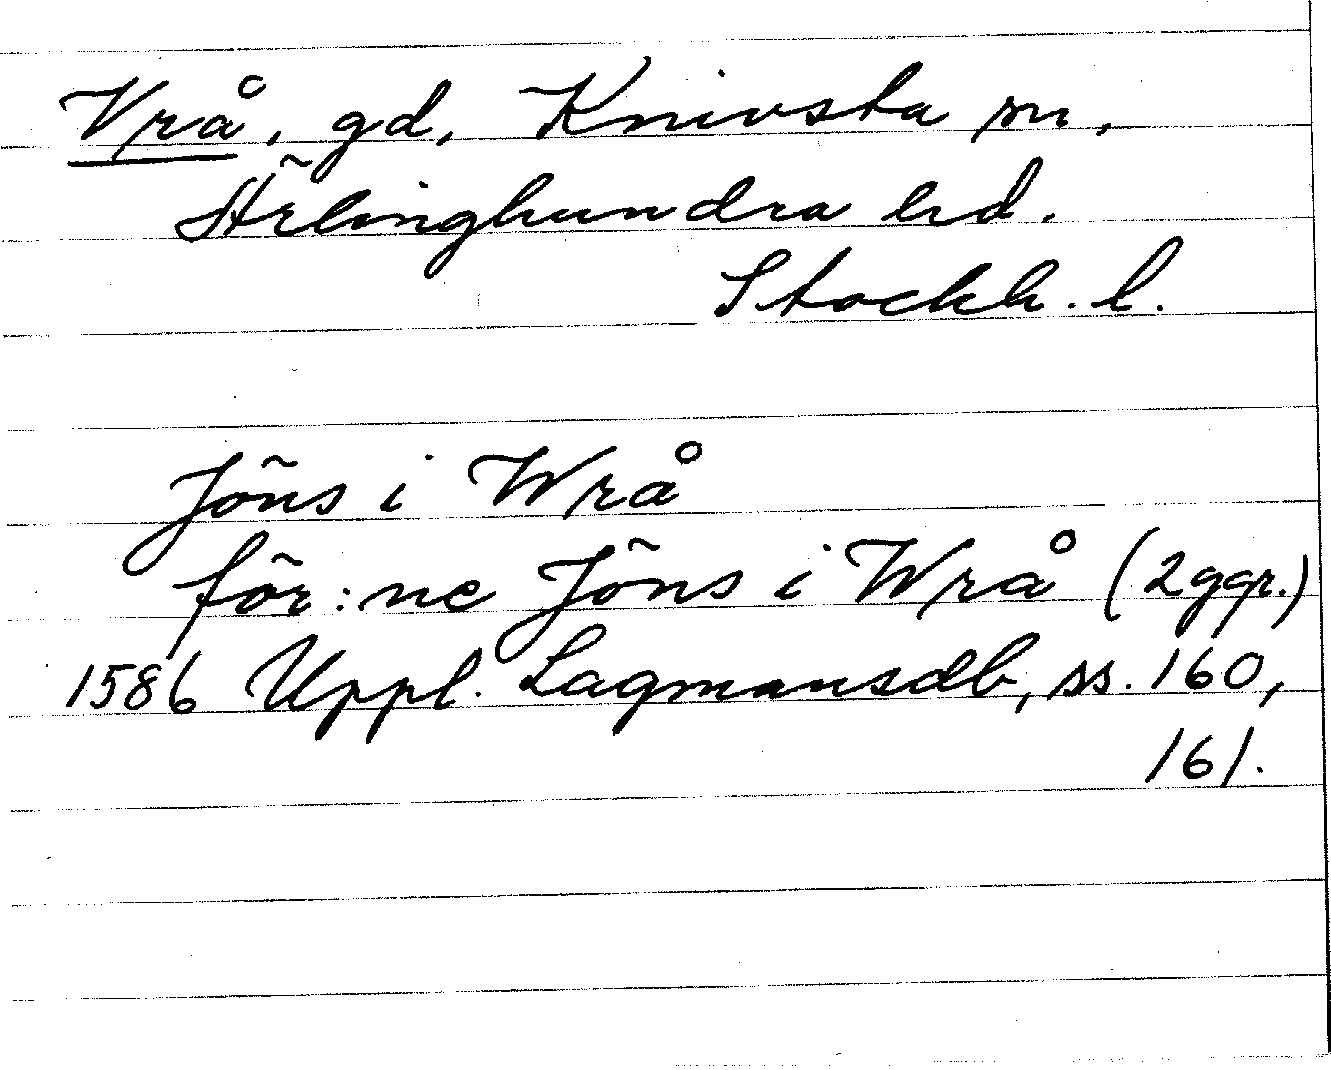 Vrå, gd, Knivsta sn,
Ärlinghundra hd.
Stockh. l.
Jöns i Wrå
för:ne Jöns i Wrå (2 ggr.)
1586 Uppl. Lagmansdb, ss. 160,
161.